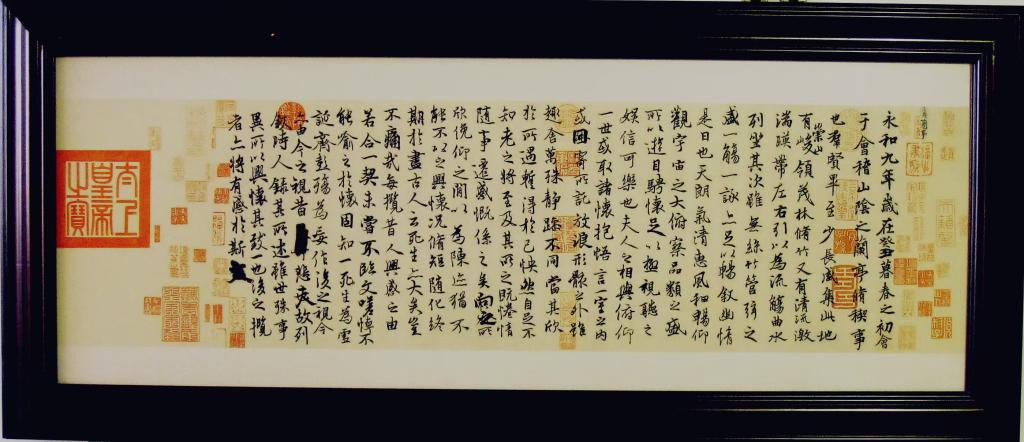 永和九年歲在癸丑暮春之初會
于會稽山陰之蘭亭脩禊事
也羣賢畢至少長咸集此地
有崇山峻領茂林脩竹又有清流激
湍暎帶左右引以為流觴曲水
列坐其次雖無絲竹管弦之
盛一觴一詠亦足以暢敘幽情
是日也天朗氣清惠風和暢仰
觀宇宙之大俯察品類之盛
所以遊目騁懷足以極視聽之
娛信可樂也夫人之相與俯仰
一世或取諸懷抱悟言一室之內
或因寄所託放浪形骸之外雖
趣舍萬殊靜躁不同當其欣
於所遇暫得於己怏然自足不
知老之將至及其所之既惓情
隨事遷感慨係之矣向之所
欣俛仰之間以為陳迹猶不
能不以之興懷況脩短隨化終
期於盡古人云死生亦大矣豈
不痛哉每攬昔人興感之由
若合一契未嘗不臨文嗟悼不
能喻之於懷固知一死生為虛
誕齊彭殤為妄作後之視今
亦由今之視昔悲夫故列
敘時人錄其所述雖世殊事
異所以興懷其致一也後之攬
者亦將有感於斯文
太上
皇帝
之寶